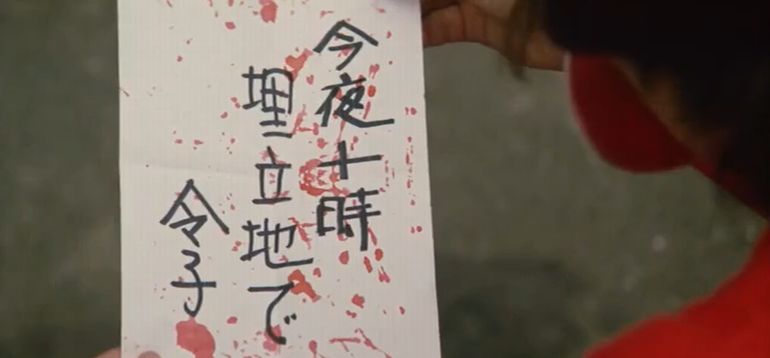 今夜十時
埋立地で
令子